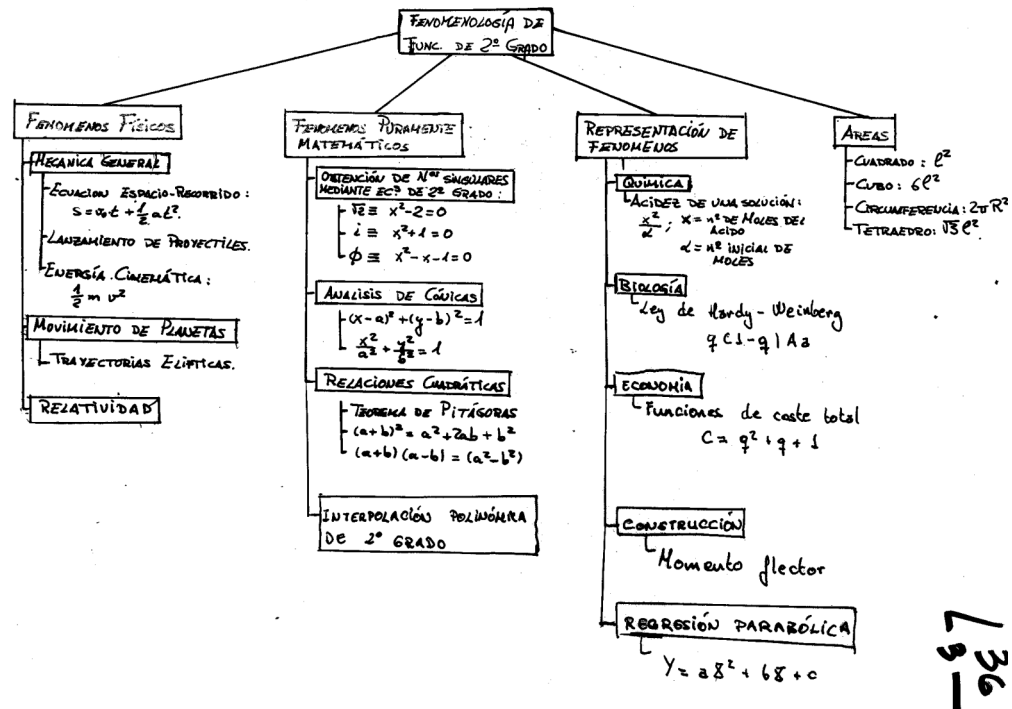 FENOMENOLOGÍA DE
FUNC. DE 2º GRADO
FENOMENOS FÍSICOS
MECANICA GENERAL
ECUACION ESPACIO-RECORRIDO:
s = v₀t + 1/2 at².
LANZAMIENTO DE PROYECTILES.
ENERGÍA CINEMÁTICA:
1/2 m v²
MOVIMIENTO DE PLANETAS
TRAYECTORIAS ELIPTICAS.
RELATIVIDAD
FENOMENOS PURAMENTE
MATEMÁTICOS
OBTENCIÓN DE Nos SINGULARES
MEDIANTE EC² DE 2º GRADO:
√2 ≡ x²-2=0
i ≡ x²+1=0
ϕ ≡ x²-x-1=0
ANALISIS DE CÓNICAS
(x-a)² + (y-b)² = 1
x²/a² + y²/b² = 1
RELACIONES CUADRÁTICAS
TEOREMA DE PITÁGORAS
(a+b)² = a² + 2ab + b²
(a+b)(a-b) = (a²-b²)
INTERPOLACIÓN POLINÓMICA
DE 2º GRADO
REPRESENTACIÓN DE
FENOMENOS
QUIMICA
ACIDEZ DE UNA SOLUCIÓN:
x²/α ; x = nº DE MOLES DEL
ACIDO
α = nº INICIAL DE
MOLES
BIOLOGÍA
Ley de Hardy-Weinberg
q C1-q | Aa
ECONOMÍA
Funciones de coste total
C = q² + q + 1
CONSTRUCCIÓN
Momento flector
REGRESIÓN PARABÓLICA
Y = a8² + b8 + c
AREAS
CUADRADO: ℓ²
CUBO: 6ℓ²
CIRCUNFERENCIA: 2π R²
TETRAEDRO: √3 ℓ².
36